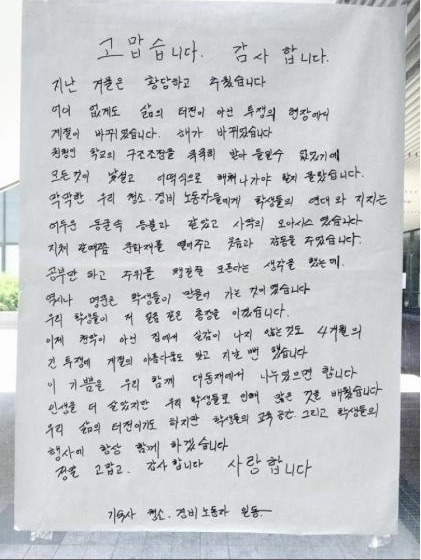 고맙습니다. 감사 합니다.
지난 겨울은 황당하고 추웠습니다
어디 없게도 삶의 터전이 아닌 투쟁의 현장에서
계절이 바뀌었습니다. 해가 바뀌었습니다
학교의 구조조정을 받아 들일수 없었기에
모든것이 낯설고 어떡식으로 해쳐 나가야 할지 몰랐습니다.
막막한 우리 청소.경비 노동자들에게 학생들의 연대와 지지는
어두운 동굴속 등불과 같았고 사막의 오아시스 였습니다
지쳐 갈때쯤 문화제를 열어주고 웃음과 감동을 주었습니다.
공부만 하고 주위를 챙길줄 모른다는 생각을 했는데.
역시나 명문은 학생들이 만들어 가는 것이 였습니다
우리 학생들이 저 얼음 같은 총장을 이겼습니다.
이제 천막이 아닌 집에서 실감이 나지 않는것도 4개월의
긴 투쟁에 계절의 아름다움도 잊고 지낼 뻔 했습니다
이 기쁨을 우리 함께 대동제에서 나누었으면 합니다
인생을 더 살았지만 우리 학생들로 인해 많은 것을 배웠습니다
우리 삶의 터전이기도 하지만 학생들의 교육 공간. 그리고 학생들의
행사에 항상 함께 하겠습니다
정말 고맙고. 감사 합니다 사랑 합니다
기숙사 청소.경비 노동자 일동